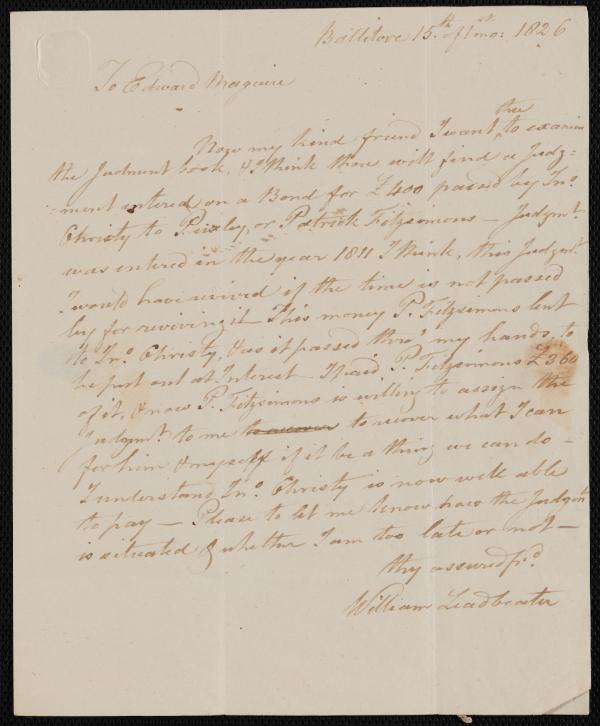 Ballitore 15th. of 1st mo: 1826
To Edward Maguire
Now my kind friend I want thee to examin
the Judment book, & I think thou will find a Judg=
=ment entered on a Bond for £400 passed by Jno.
Christy to or Patrick Fitzsimons — Judgmt.
was entered in the year 1811 I think, this Judgmt.
I would have revived if the time is not passed
by for reviving it This money P. Fitzsimons lent
to Jno. Christy, & as it passed thro' my hands, to
be put out at Interest I paid P. Fitzsimons £360
of it, & now P. Fitzsimons is willing to assign the
Judgmt. to me to recover to recover what I can
for him & myself if it be a thing we can do —
I understand Jno. Christy is now well able
to pay — Please to let me know how the Judgmt
is situated & whether I am too late or not —
thy assured frd.
William Leadbeater